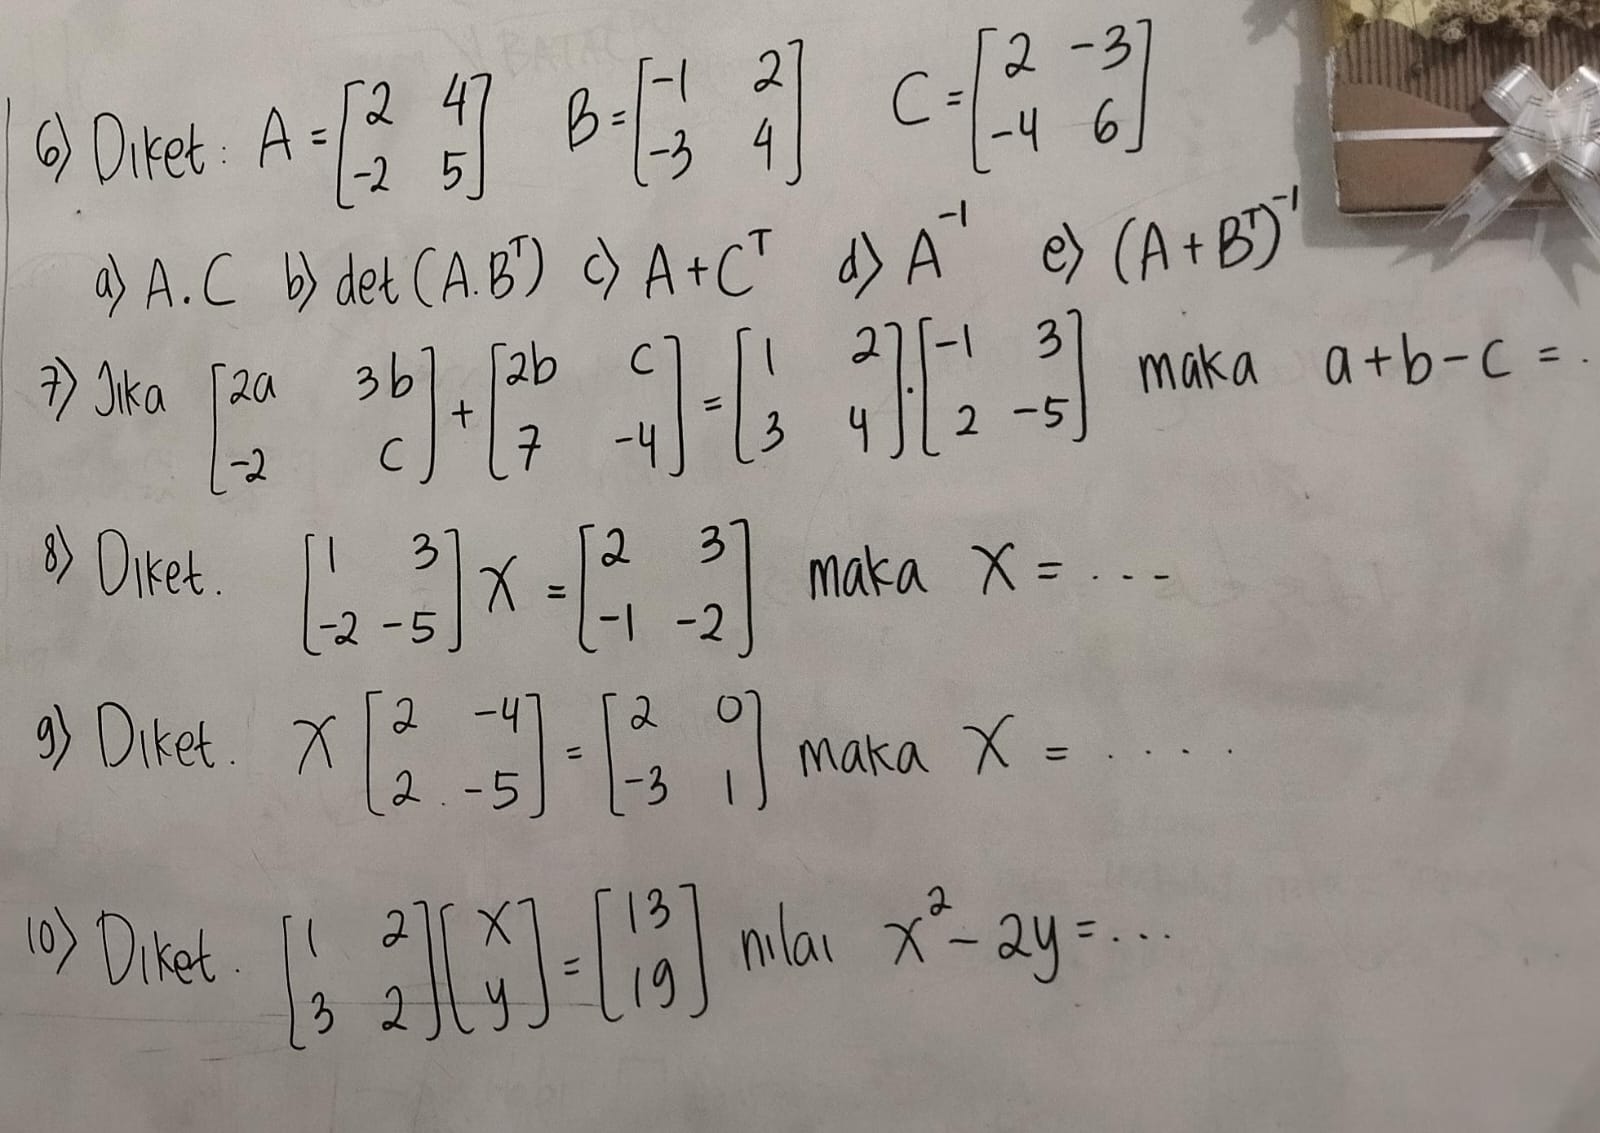 6) Diket: A = [2 4 -2 5] B = [-1 2 -3 4] C = [2 -3 -4 6]
a) A.C b) det (A.B^T) c) A + C^T d) A^-1 e) (A + B^T)^-1
7) Jika [2a 3b -2 c] + [2b c 7 -4] = [1 2 3 4].[-1 3 2 -5] maka a+b-c = .
8) Diket. [1 3 -2 -5] X = [2 3 -1 -2] maka X = ....
9) Diket. X [2 -4 2 -5] = [2 0 -3 1] maka X = .....
10) Diket. [1 2 3 2][x y] = [13 19] nilai x^2 - 2y = ...